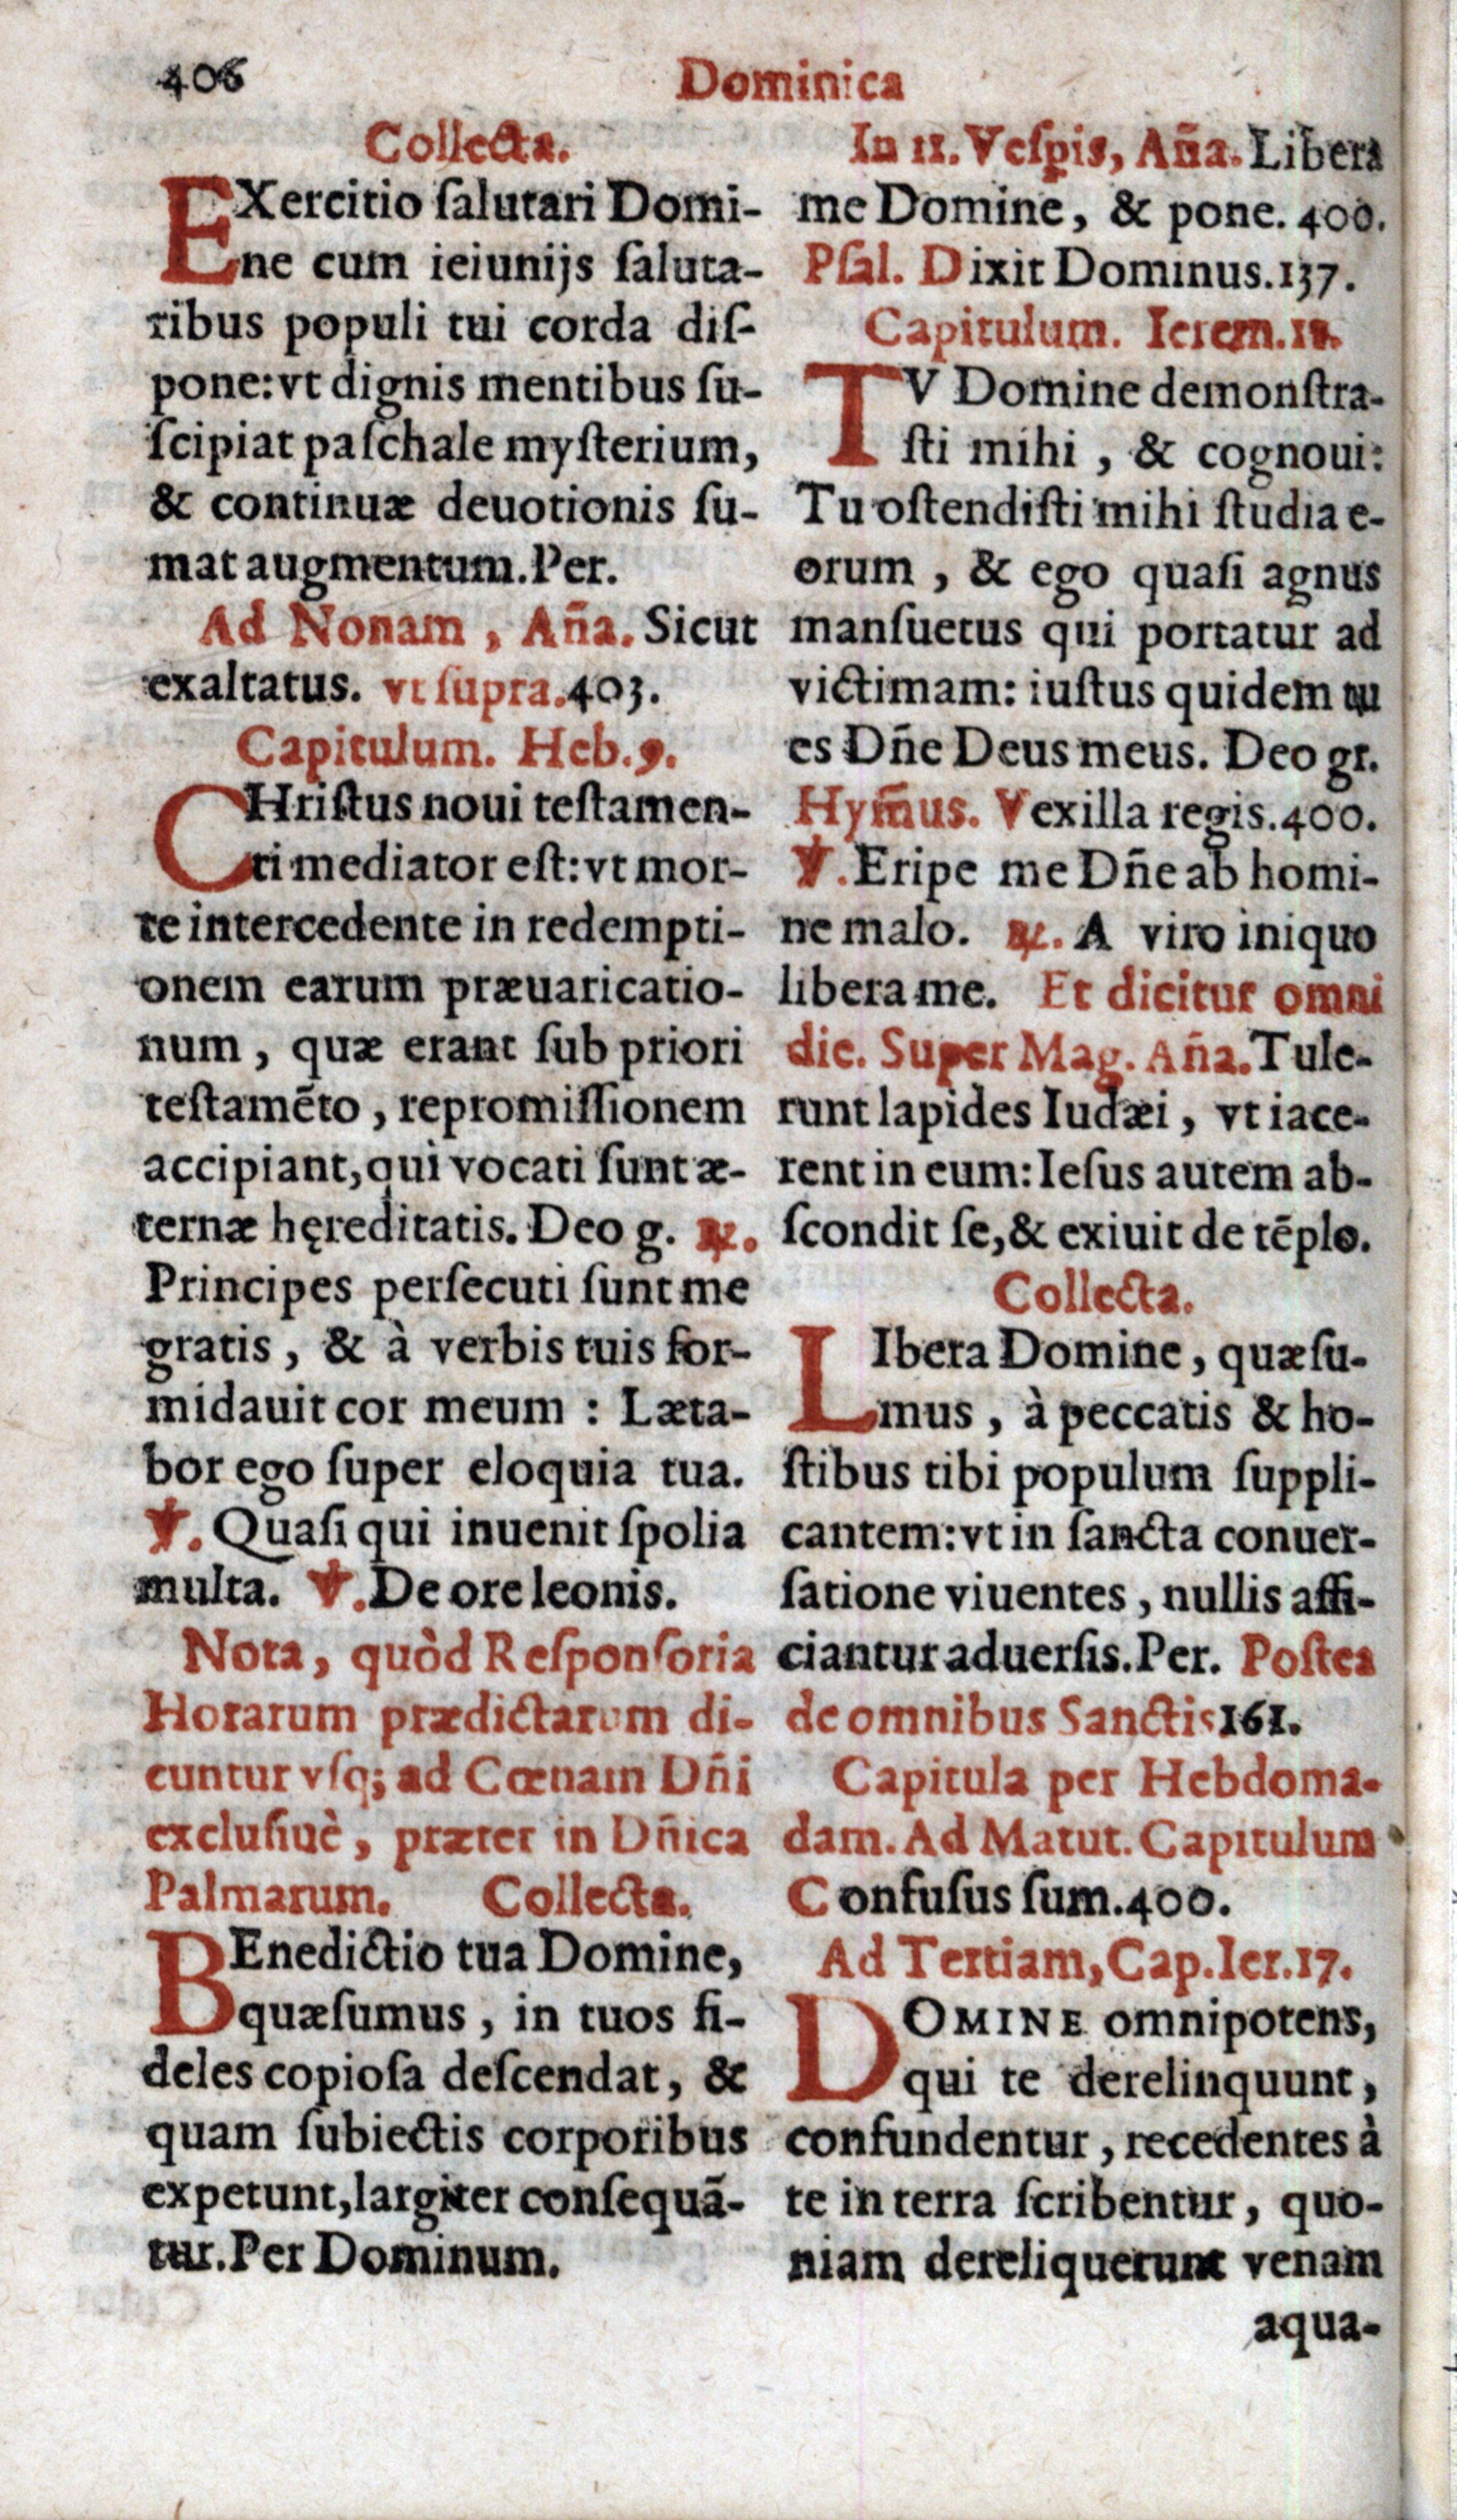 406
Dominica
Collecta.
EXercitio ſalutari Domi-
ne cum ieiunijs ſaluta-
ribus populi tui corda diſ-
pone: vt dignis mentibus ſu-
ſcipiat paſchale myſterium,
& continuæ deuotionis ſu-
mat augmentum. Per.
Ad Nonam, Aña. Sicut
exaltatus. vt ſupra. 403.
Capitulum. Heb. 9.
CHriſtus noui teſtamen-
ti mediator eſt: vt mor-
te intercedente in redempti-
onem earum præuaricatio-
num, quæ erant ſub priori
teſtamẽto, repromiſſionem
accipiant, qui vocati ſunt æ-
ternæ hęreditatis. Deo g. ℟.
Principes perſecuti ſunt me
gratis, & à verbis tuis for-
midauit cor meum : Læta-
bor ego ſuper eloquia tua.
℣. Quaſi qui inuenit ſpolia
multa. ℣. De ore leonis.
Nota, quòd Reſponſoria
Horarum prædictarum di-
cuntur vſq; ad Cœnam Dñi
excluſiuè, præter in Dñica
Palmarum. Collecta.
BEnedictio tua Domine,
quæſumus, in tuos fi-
deles copioſa deſcendat, &
quam ſubiectis corporibus
expetunt, largiter conſequã-
tur. Per Dominum.
In II. Veſpis, Aña. Libera
me Domine, & pone. 400.
Pſal. Dixit Dominus. 137.
Capitulum. Ierem. 11.
TV Domine demonſtra-
ſti mihi, & cognoui:
Tu oſtendiſti mihi ſtudia e-
orum, & ego quaſi agnus
manſuetus qui portatur ad
victimam: iuſtus quidem tu
es Dñe Deus meus. Deo gr.
Hym̃us. Vexilla regis. 400.
℣. Eripe me Dñe ab homi-
ne malo. ℟. A viro iniquo
libera me. Et dicitur omni
die. Super Mag. Aña. Tule-
runt lapides Iudæi, vt iace-
rent in eum: Ieſus autem ab-
ſcondit ſe, & exiuit de tẽplo.
Collecta.
LIbera Domine, quæſu-
mus, à peccatis & ho-
ſtibus tibi populum ſuppli-
cantem: vt in ſancta conuer-
ſatione viuentes, nullis affi-
ciantur aduerſis. Per. Poſtea
de omnibus Sanctis 161.
Capitula per Hebdoma-
dam. Ad Matut. Capitulum
Confuſus ſum. 400.
Ad Tertiam, Cap. Ier. 17.
DOMINE omnipotens,
qui te derelinquunt,
confundentur, recedentes à
te in terra ſcribentur, quo-
niam dereliquerunt venam
aqua-